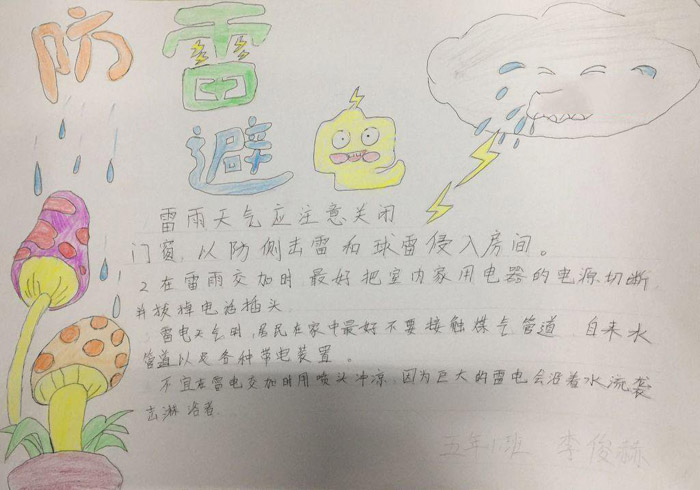 防雷
避电
雷雨天气应注意关闭
门窗,以防侧击雷和球雷侵入房间。
2.在雷雨交加时最好把室内家用电器的电源切断
并拔掉电话插头
雷电天气时,居民在家中最好不要接触煤气管道 自来水
管道以及各种带电装置。
不宜在雷电交加时用喷头冲凉,因为巨大的雷电会沿着水流袭
击淋浴者
五年1班 李俊赫